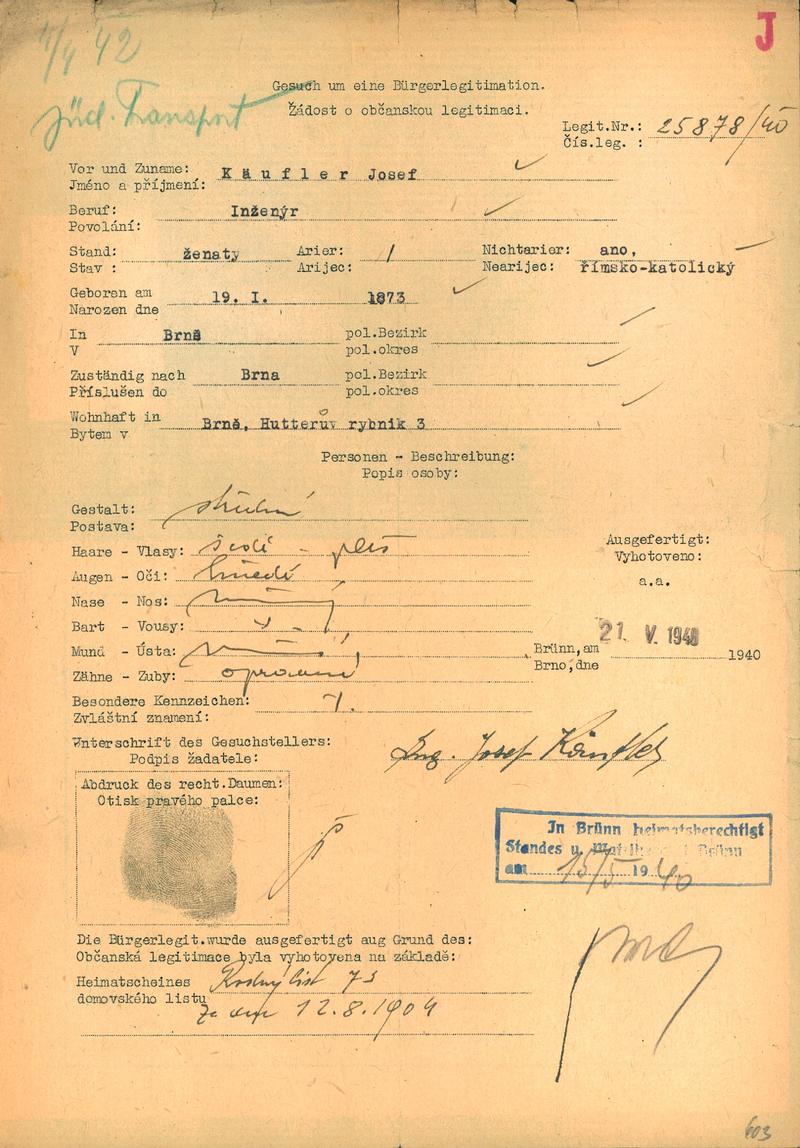 4/4 42
J
jüd. Transport
Gesuch um eine Bürgerlegitimation.
Žádost o občanskou legitimaci.
Legit.Nr.: 25878/40
Čís.leg. :
Vor und Zuname: Käufler Josef
Jméno a příjmení:
Beruf: Inženýr
Povolání:
Stand: ženatý Arier: / Nichtarier: ano,
Stav : Arijec: Nearijec: římsko-katolický
Geboren am 19. I. 1873
Narozen dne
In Brně pol.Bezirk
V pol.okres
Zuständig nach Brna pol.Bezirk
Příslušen do pol.okres
Wohnhaft in Brně, Hutterův rybník 3
Bytem v
Personen - Beschreibung:
Popis osoby:
Gestalt:
Postava:
Haare - Vlasy: šedé - pleš
Augen - Oči: hnědé
Nase - Nos:
Bart - Vousy:
Mund - Ústa:
Zähne - Zuby:
Ausgefertigt:
Vyhotoveno:
a.a.
Brünn, am 21. V. 1940 1940
Brno, dne
Besondere Kennzeichen:
Zvláštní znamení:
Unterschrift des Gesuchstellers: Ing. Josef Käufler
Podpis žadatele:
Abdruck des recht.Daumen:
Otisk pravého palce:
In Brünn heimatsberechtigt
Standes u. Brünn
am 15/5 1940
Die Bürgerlegit.wurde ausgefertigt aug Grund des:
Občanská legitimace byla vyhotovena na základě:
Heimatscheines Rodný list
domovského listu ze dne 12.8.1904
603